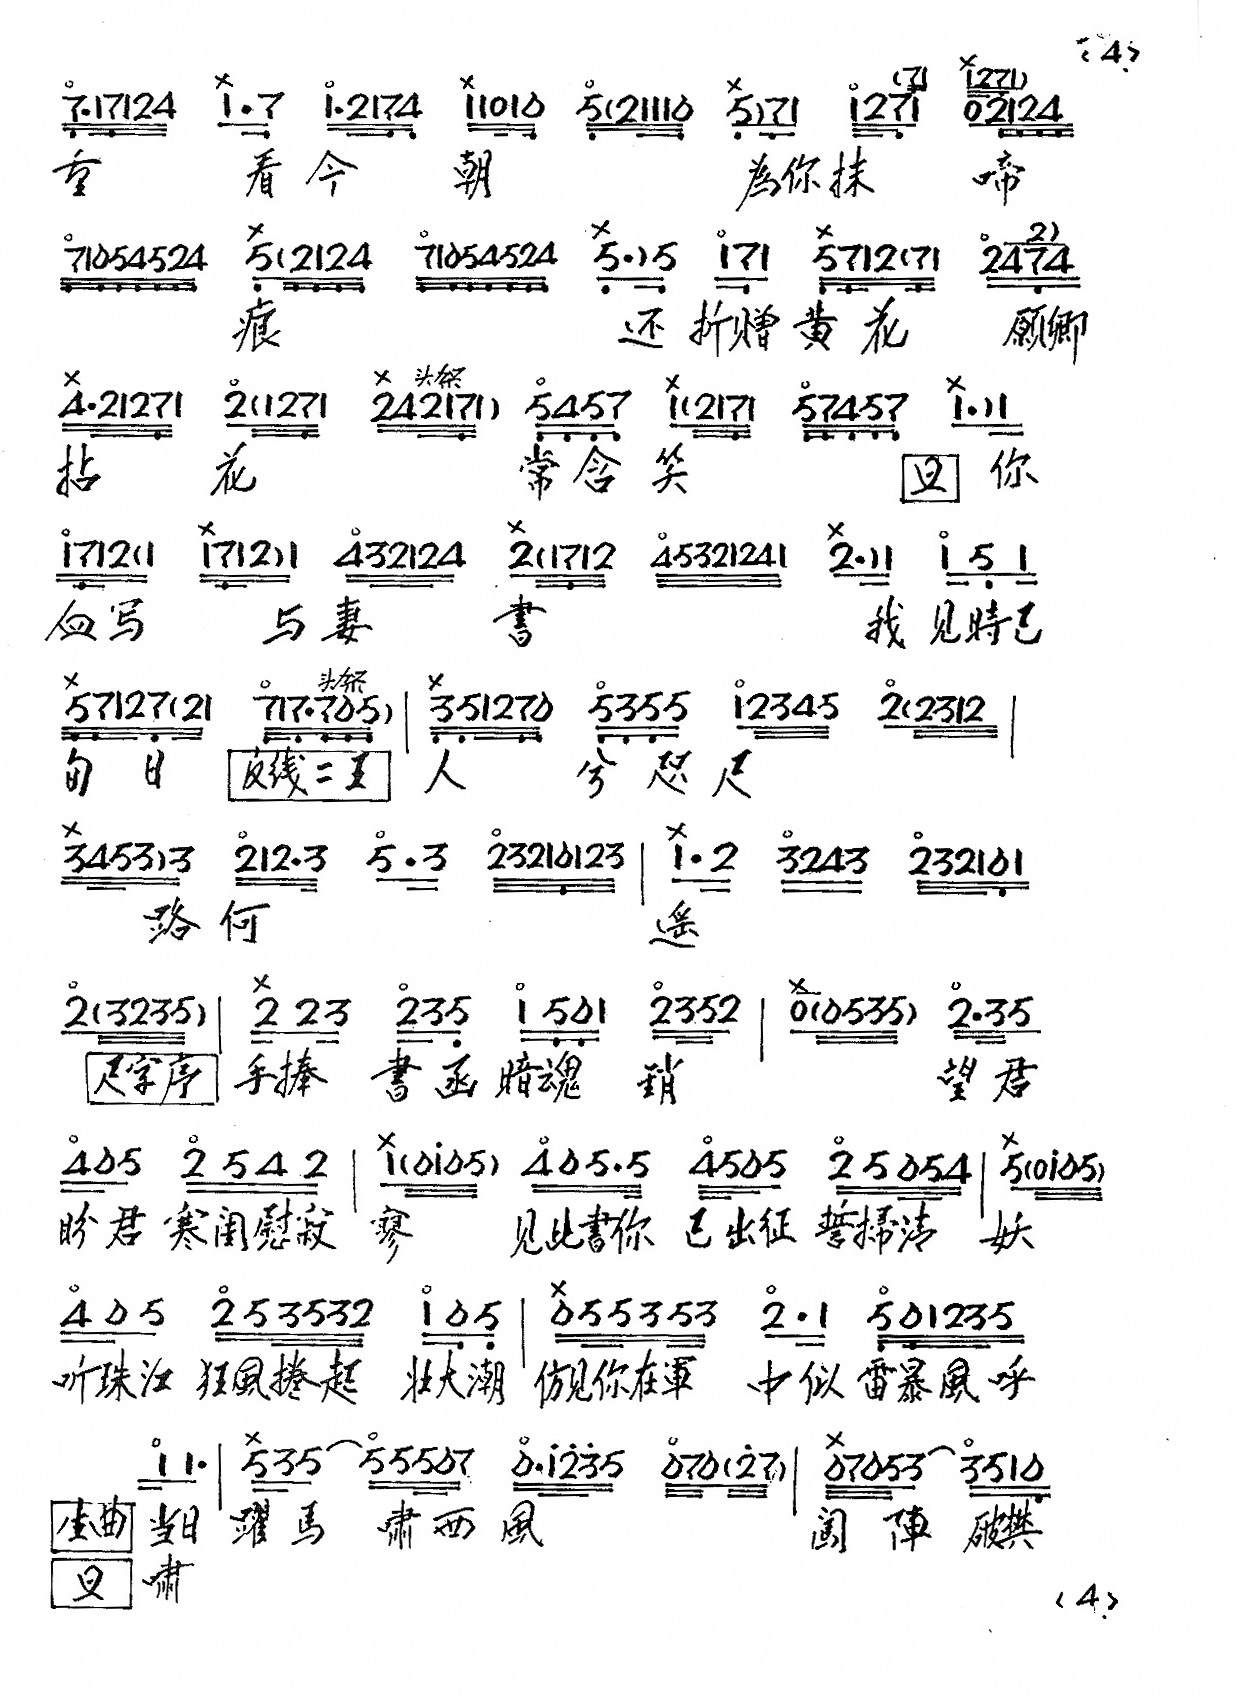 (4)
(71 i271)
7·17124 i·7 i·2174 i1010 5(21110 5)71 i271 02124
重 看今 朝 為你抹 啼
2)
71054524 5(2124 71054524 5·)5 i71 5712(71 2474
痕 还折 黄花 願卿
头架
4·21271 2(1271 242171) 5457 i(2171 57457 i·)1
拈 花 常含笑 旦 你
i712(1 i712)1 432124 2(1712 45321241 2·)1 i 5 1
血写 与妻 書 我見時已
头架
57127(21 717·705) | 351270 5355 i2345 2(2312 |
旬日 反线二王 人 兮 咫尺
3453)3 212·3 5·3 23210123 | i·2 3243 232101
路何 遥
2(3235) | 2 23 235 i 501 2352 | 0(0535) 2·35
尺字序 手捧 書函 暗魂 銷 望君
405 2 5 4 2 | i(0i05) 405·5 4505 25054 | 5(0i05)
盼君 寒闺慰寂 寥 見此書你 已出征 誓掃清 妖
4 0 5 2 5 3532 i 0 5 | 055353 2·1 501235
听珠江 狂風捲起 壮大潮 仿見你在軍 中似 雷暴風呼
i 1· | 535 55507 0·i235 070(27) | 07053 3510
生曲 当日 躍馬 嘯西風 闖陣 破樊
旦 嘯
(4)